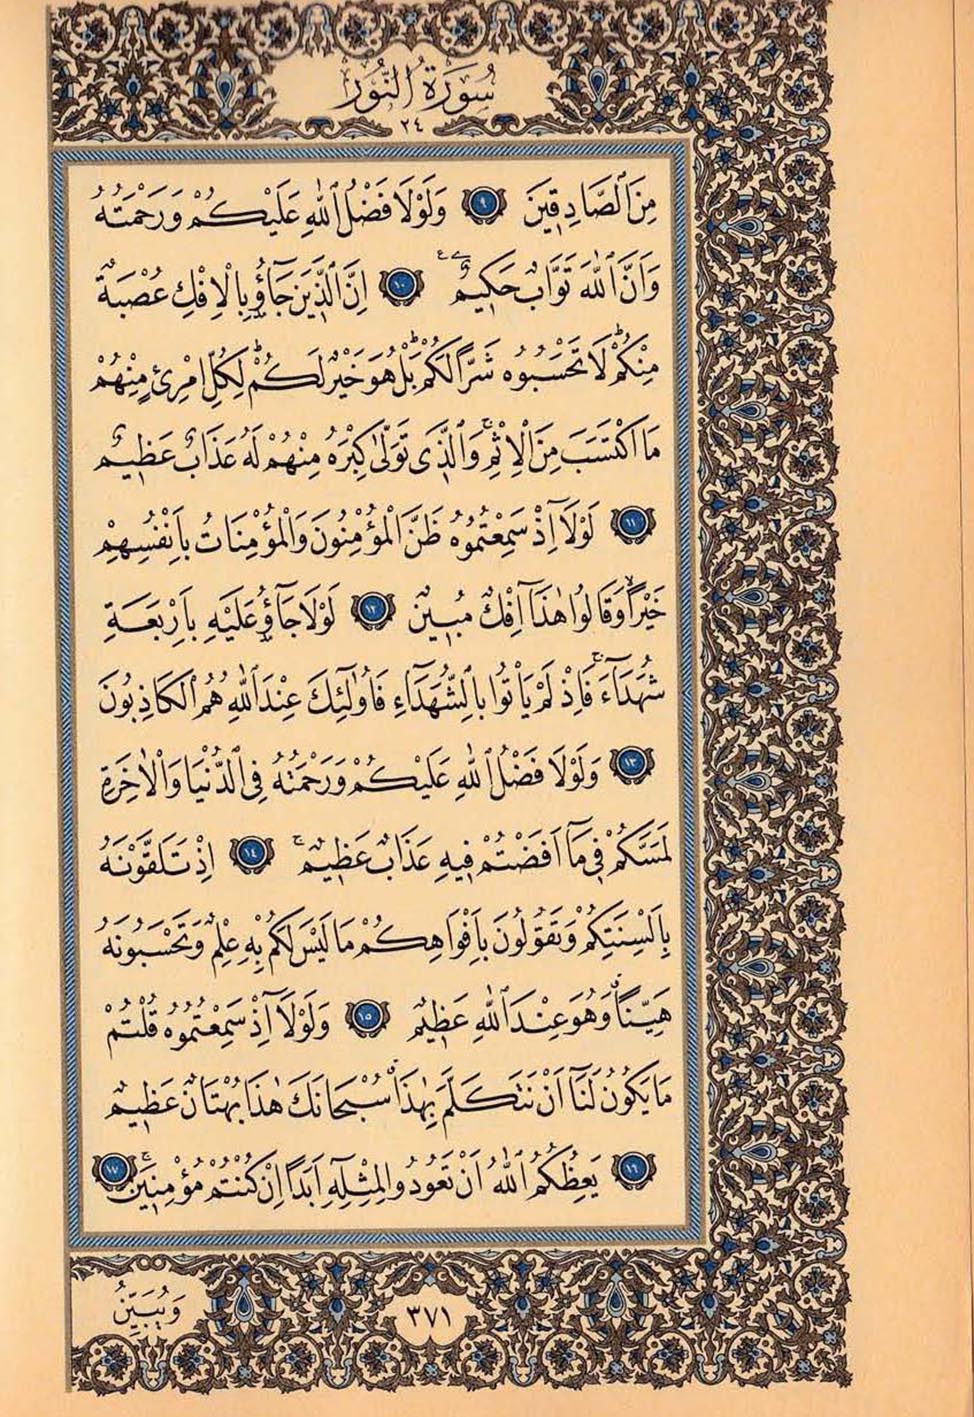 سُورَةُ النُّورِ
٢٤
مِنَ الصَّادِقِينَ ٩ وَلَوْلَا فَضْلُ اللّٰهِ عَلَيْكُمْ وَرَحْمَتُهُ
وَاَنَّ اللّٰهَ تَوَّابٌ حَكِيمٌ ع ١٠ اِنَّ الَّذِينَ جَآؤُ بِالْاِفْكِ عُصْبَةٌ
مِنْكُمْ لَا تَحْسَبُوهُ شَرًّا لَكُمْ بَلْ هُوَ خَيْرٌ لَكُمْ لِكُلِّ امْرِئٍ مِنْهُمْ
مَا اكْتَسَبَ مِنَ الْاِثْمِ ۚ وَالَّذِى تَوَلّٰى كِبْرَهُ مِنْهُمْ لَهُ عَذَابٌ عَظِيمٌ
١١ لَوْلَآ اِذْ سَمِعْتُمُوهُ ظَنَّ الْمُؤْمِنُونَ وَالْمُؤْمِنَاتُ بِاَنْفُسِهِمْ
خَيْرًا وَقَالُوا هٰذَآ اِفْكٌ مُبِينٌ ١٢ لَوْلَا جَآؤُ عَلَيْهِ بِاَرْبَعَةِ
شُهَدَآءَ ۚ فَاِذْ لَمْ يَاْتُوا بِالشُّهَدَآءِ فَاُولٰٓئِكَ عِنْدَ اللّٰهِ هُمُ الْكَاذِبُونَ
١٣ وَلَوْلَا فَضْلُ اللّٰهِ عَلَيْكُمْ وَرَحْمَتُهُ فِى الدُّنْيَا وَالْاٰخِرَةِ
لَمَسَّكُمْ فِى مَآ اَفَضْتُمْ فِيهِ عَذَابٌ عَظِيمٌ ۚ ١٤ اِذْ تَلَقَّوْنَهُ
بِاَلْسِنَتِكُمْ وَتَقُولُونَ بِاَفْوَاهِكُمْ مَا لَيْسَ لَكُمْ بِهِ عِلْمٌ وَتَحْسَبُونَهُ
هَيِّنًا وَهُوَ عِنْدَ اللّٰهِ عَظِيمٌ ١٥ وَلَوْلَآ اِذْ سَمِعْتُمُوهُ قُلْتُمْ
مَا يَكُونُ لَنَآ اَنْ نَتَكَلَّمَ بِهٰذَا سُبْحَانَكَ هٰذَا بُهْتَانٌ عَظِيمٌ
١٦ يَعِظُكُمُ اللّٰهُ اَنْ تَعُودُوا لِمِثْلِهِٓ اَبَدًا اِنْ كُنْتُمْ مُؤْمِنِينَ ۚ ١٧
وَيُبَيِّنُ
٣٧١